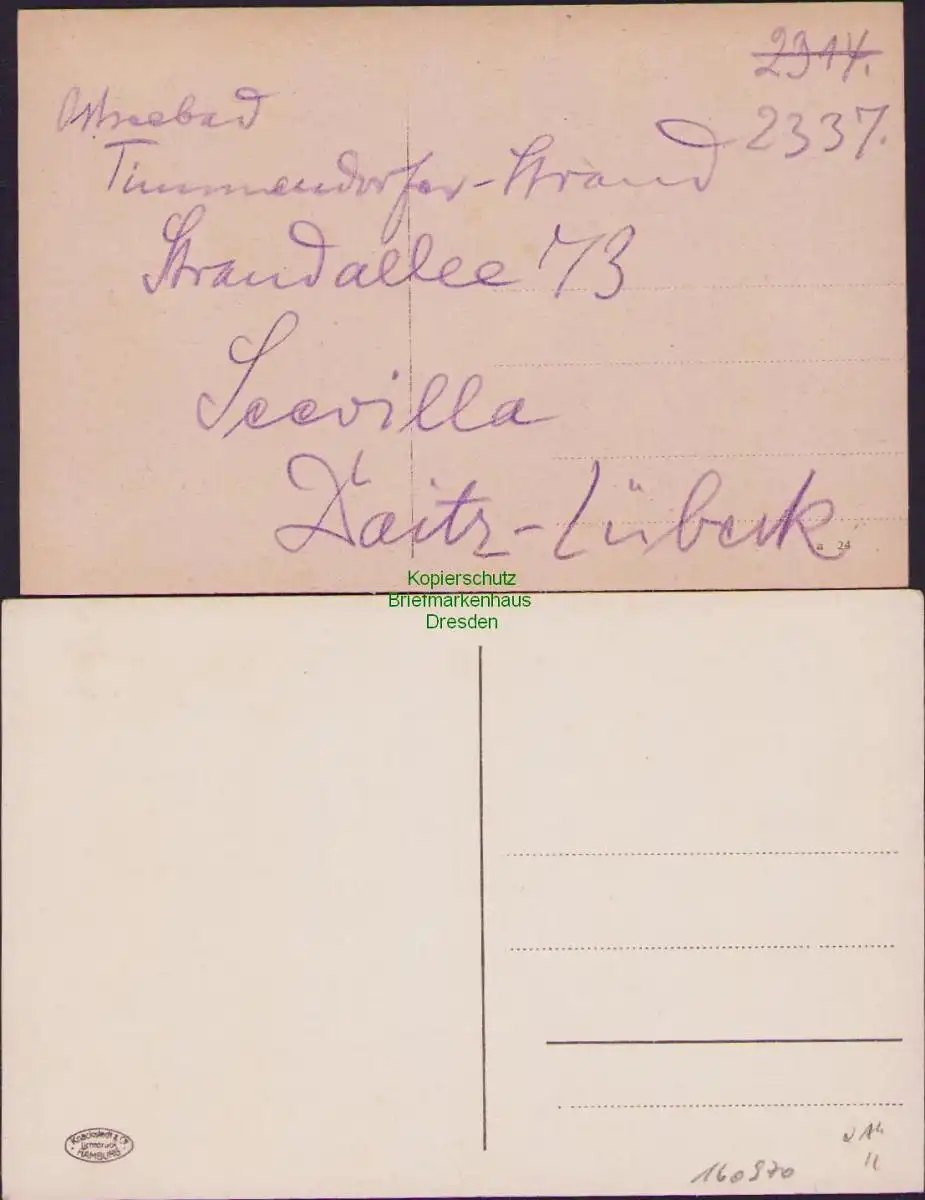 2914.
2337.
Ostseebad
Timmendorfer-Strand
Strandallee 73
Seevilla
Daitz-Lübeck
a 24
Kopierschutz
Briefmarkenhaus
Dresden
Knackstedt & Co
Lichtdruck
HAMBURG
160970